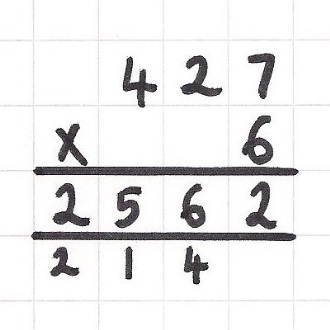 4 2 7
x 6
2 5 6 2
2 1 4